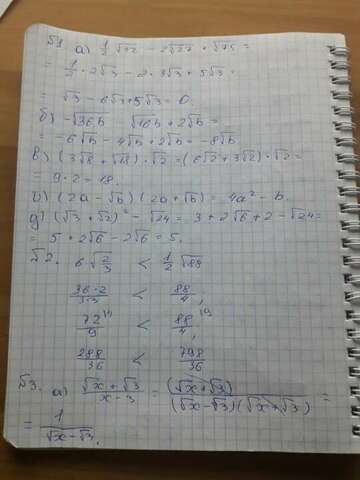 №1 а) 1/2 √12 - 2√27 + √75 =
= 1/2 · 2√3 - 2 · 3√3 + 5√3 =
= √3 - 6√3 + 5√3 = 0.
б) -√36b - √16b + 2√b =
= -6√b - 4√b + 2√b = -8√b
в) (3√8 + √18) · √2 = (6√2 + 3√2) · √2 =
= 9 · 2 = 18.
г) (2a - √b) (2a + √b) = 4a² - b.
д) (√3 + √2)² - √24 = 3 + 2√6 + 2 - √24 =
= 5 + 2√6 - 2√6 = 5.
№2. 6√2/3 < 1/2 √88
36·2/3·3 < 88/4,
72/9 < 88/4,
288/36 < 798/36
№3. а) √x + √3 / x - 3 = (√x + √3) / (√x - √3) (√x + √3) =
= 1 / √x - √3.